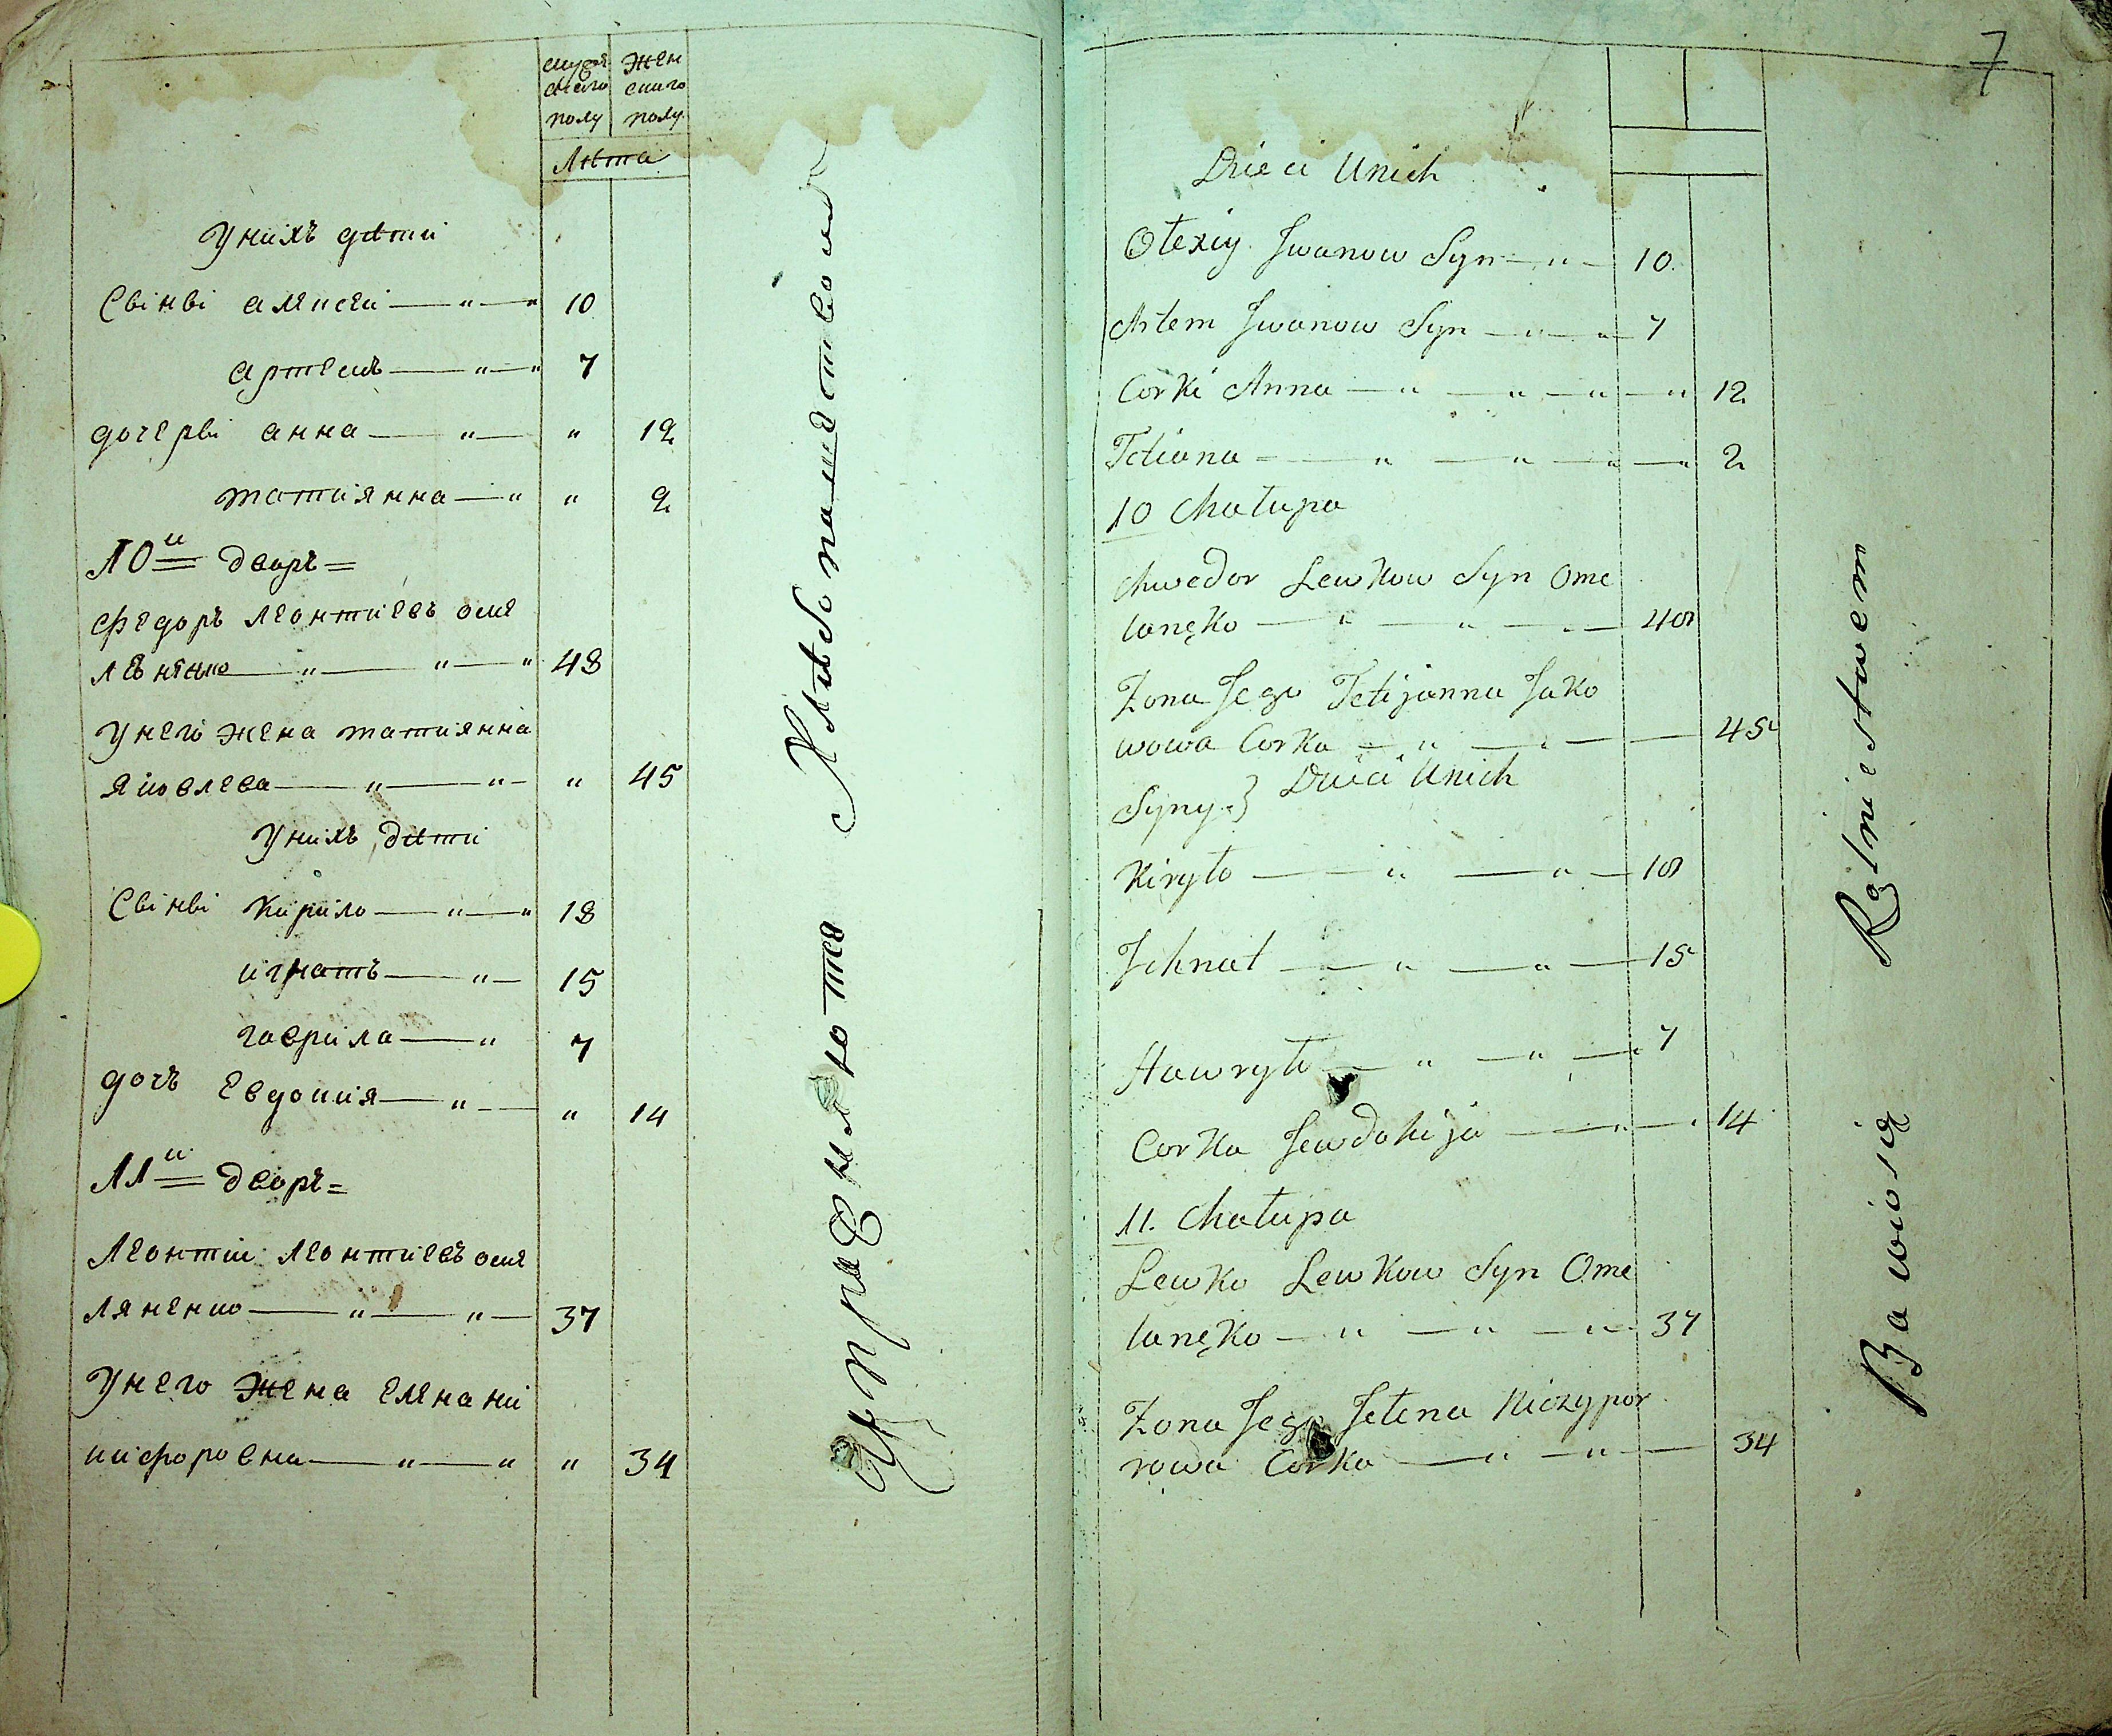 мужеского полу
женского полу
Лѣта
У нихъ дѣти
Сыны алексѣи — " — " 10
артемъ — " — " 7
дочеры анна — " — " 12
татиянна — " " 2
10й дворъ =
Федоръ леонтиевъ оме
лянѣнко — " — " — " 48
У него жена татиянна
яковлева — " — " — " 45
У нихъ дѣти
Сыны Кирило — " — " 18
игнатъ — " — 15
гаврила — " 7
дочъ Евдокия — " — " 14
11й дворъ =
Леонтии леонтиевъ оме
ляненко — " — " — 37
У него жена Елена ни
кифоровна — " — " " 34
Упражняются Хлѣбопашествомъ
7
Dzieci Unich
Olexiy Jwanow Syn — " — 10
Artem Jwanow Syn — " — 7
Corki Anna — " — " — " — " 12
Tetiana — " — " — " — " 2
10 Chałupa
Chwedor Lewkow Syn Ome
lanęko — " — " — " — 48
Zona Jego Tetijanna Jako
wowa Corka — " — " — 45
Dzieci Unich
Syny }
Kiryło — " — " — 18
Jchnat — " — " — 15
Hawryło — " — " — 7
Corka Jewdokija — " — " 14
11. Chałupa
Lewko Lewkow Syn Ome
lanęko — " — " — " — 37
Zona Jego Jelena Niczypor
rowa Corka — " — " — 34
Bawiosię Rolniestwem